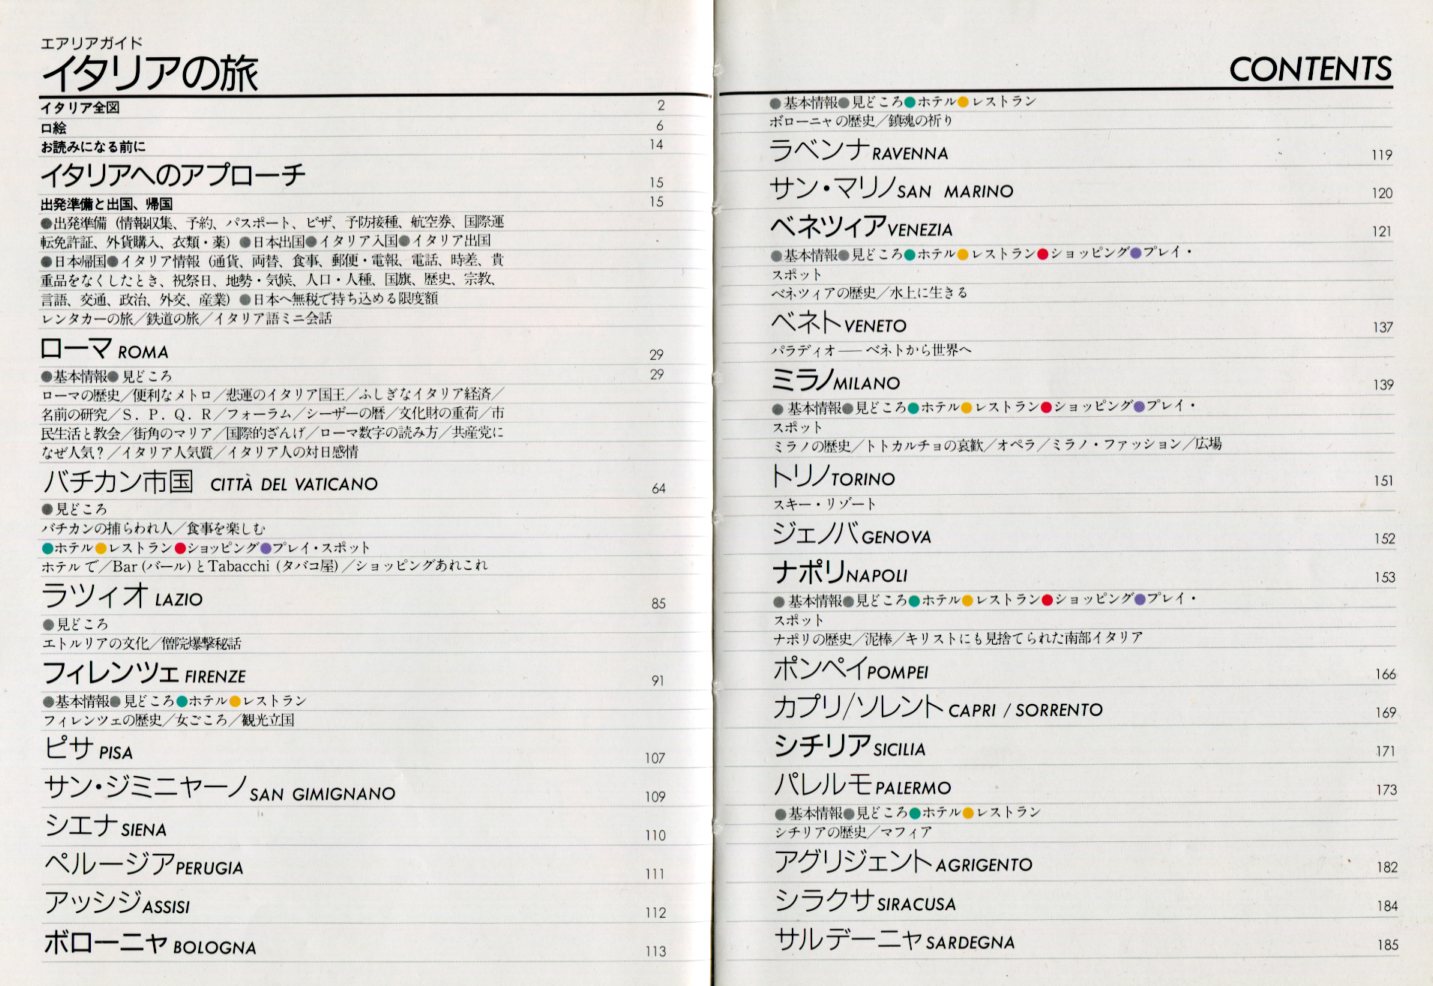 エアリアガイド
イタリアの旅
イタリア全図 2
口絵 6
お読みになる前に 14
イタリアへのアプローチ 15
出発準備と出国、帰国 15
●出発準備（情報収集、予約、パスポート、ビザ、予防接種、航空券、国際運
転免許証、外貨購入、衣類・薬）●日本出国●イタリア入国●イタリア出国
●日本帰国●イタリア情報（通貨、両替、食事、郵便・電報、電話、時差、貴
重品をなくしたとき、祝祭日、地勢・気候、人口・人種、国旗、歴史、宗教、
言語、交通、政治、外交、産業）●日本へ無税で持ち込める限度額
レンタカーの旅／鉄道の旅／イタリア語ミニ会話
ローマ ROMA 29
●基本情報●見どころ 29
ローマの歴史／便利なメトロ／悲運のイタリア国王／ふしぎなイタリア経済／
名前の研究／S．P．Q．R／フォーラム／シーザーの暦／文化財の重荷／市
民生活と教会／街角のマリア／国際的ざんげ／ローマ数字の読み方／共産党に
なぜ人気？／イタリア人気質／イタリア人の対日感情
バチカン市国 CITTÀ DEL VATICANO 64
●見どころ
バチカンの捕らわれ人／食事を楽しむ
●ホテル●レストラン●ショッピング●プレイ・スポット
ホテルで／Bar（バール）とTabacchi（タバコ屋）／ショッピングあれこれ
ラツィオ LAZIO 85
●見どころ
エトルリアの文化／僧院爆撃秘話
フィレンツェ FIRENZE 91
●基本情報●見どころ●ホテル●レストラン
フィレンツェの歴史／女ごころ／観光立国
ピサ PISA 107
サン・ジミニャーノ SAN GIMIGNANO 109
シエナ SIENA 110
ペルージア PERUGIA 111
アッシジ ASSISI 112
ボローニャ BOLOGNA 113
CONTENTS
●基本情報●見どころ●ホテル●レストラン
ボローニャの歴史／鎮魂の祈り
ラベンナ RAVENNA 119
サン・マリノ SAN MARINO 120
ベネツィア VENEZIA 121
●基本情報●見どころ●ホテル●レストラン●ショッピング●プレイ・
スポット
ベネツィアの歴史／水上に生きる
ベネト VENETO 137
パラディオ――ベネトから世界へ
ミラノ MILANO 139
●基本情報●見どころ●ホテル●レストラン●ショッピング●プレイ・
スポット
ミラノの歴史／トトカルチョの哀歓／オペラ／ミラノ・ファッション／広場
トリノ TORINO 151
スキー・リゾート
ジェノバ GENOVA 152
ナポリ NAPOLI 153
●基本情報●見どころ●ホテル●レストラン●ショッピング●プレイ・
スポット
ナポリの歴史／泥棒／キリストにも見捨てられた南部イタリア
ポンペイ POMPEI 166
カプリ/ソレント CAPRI / SORRENTO 169
シチリア SICILIA 171
パレルモ PALERMO 173
●基本情報●見どころ●ホテル●レストラン
シチリアの歴史／マフィア
アグリジェント AGRIGENTO 182
シラクサ SIRACUSA 184
サルデーニャ SARDEGNA 185